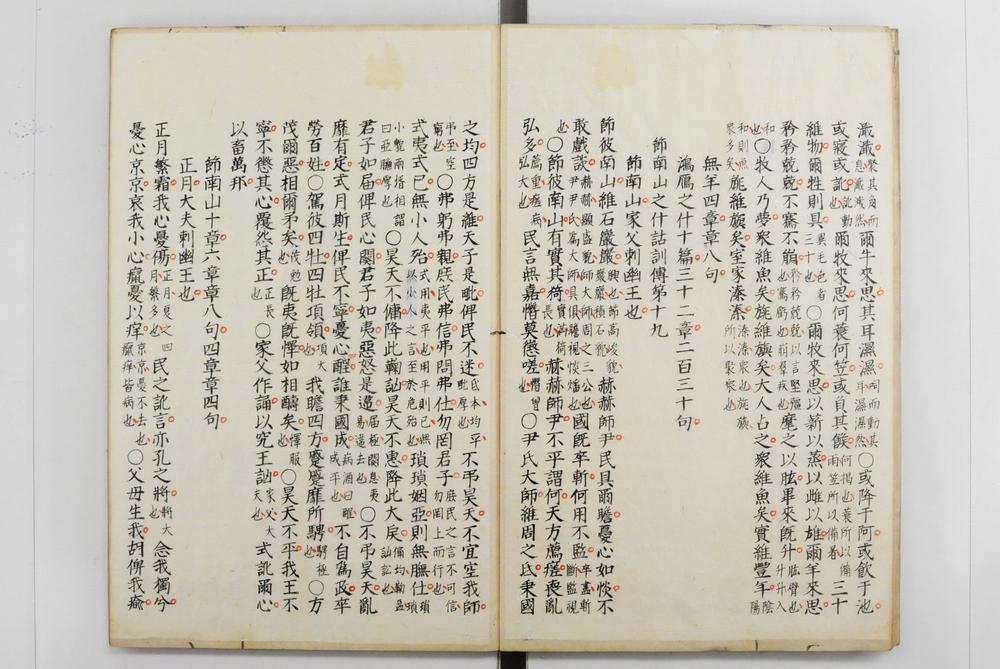 濈濈聚其角而息濈濈然爾牛來思其耳濕濕呞而動其耳濕濕然〇或降于阿或飲于池
或寢或訛訛動也爾牧來思何蓑何笠或負其餱何揭也蓑所以備雨笠所以備暑三十
維物爾牲則具異毛色者三十也〇爾牧來思以薪以蒸以雌以雄爾羊來思
矜矜兢兢不騫不崩矜矜兢兢以言堅彊也騫虧也崩羣疾也麾之以肱畢來既升肱臂也升升入
也〇牧人乃夢衆維魚矣旐維旟矣大人占之衆維魚矣實維豐年陰陽
和則魚衆多矣旐維旟矣室家溱溱溱溱衆也旐旟所以聚衆也
無羊四章章八句
鴻鴈之什十篇三十二章二百三十句
節南山之什詁訓傳第十九
節南山家父刺幽王也
節彼南山維石巖巖興也節高峻貌巖巖積石貌赫赫師尹民具爾瞻憂心如惔不
敢戲談赫赫顯盛貌師大師周之三公也尹尹氏為大師具俱瞻視惔燔也國既卒斬何用不監卒盡斬斷監視
也〇節彼南山有實其猗實滿猗長也赫赫師尹不平謂何天方薦瘥喪亂
弘多薦重瘥病弘大也民言無嘉憯莫懲嗟憯曾也〇尹氏大師維周之氐秉國
之均四方是維天子是毗俾民不迷氐本均平毗厚也不弔昊天不宜空我師
弔至空窮也〇弗躬弗親庶民弗信弗問弗仕勿罔君子庶民之言不可信勿罔上而行也
式夷式已無小人殆式用夷平也用平則已無以小人之言至於危殆也瑣瑣姻亞則無膴仕瑣瑣
小貌兩壻相謂曰亞膴厚也〇昊天不傭降此鞠訩昊天不惠降此大戾傭均鞠盈訩訟也
君子如屆俾民心闋君子如夷惡怒是違屆極闋息夷易違去也〇不弔昊天亂
靡有定式月斯生俾民不寧憂心酲誰秉國成病酒曰酲成平也不自為政卒
勞百姓〇駕彼四牡四牡項領項大也我瞻四方蹙蹙靡所騁騁極也〇方
茂爾惡相爾矛矣茂勉也既夷既懌如相醻矣懌服也〇昊天不平我王不
寧不懲其心覆怨其正正長也〇家父作誦以究王訩家父大夫也式訛爾心
以畜萬邦
節南山十章六章章八句四章章四句
正月大夫刺幽王也
正月繁霜我心憂傷正月夏之四月繁多也民之訛言亦孔之將將大也念我獨兮
憂心京京哀我小心癙憂以痒京京憂不去也癙痒皆病也〇父母生我胡俾我瘉